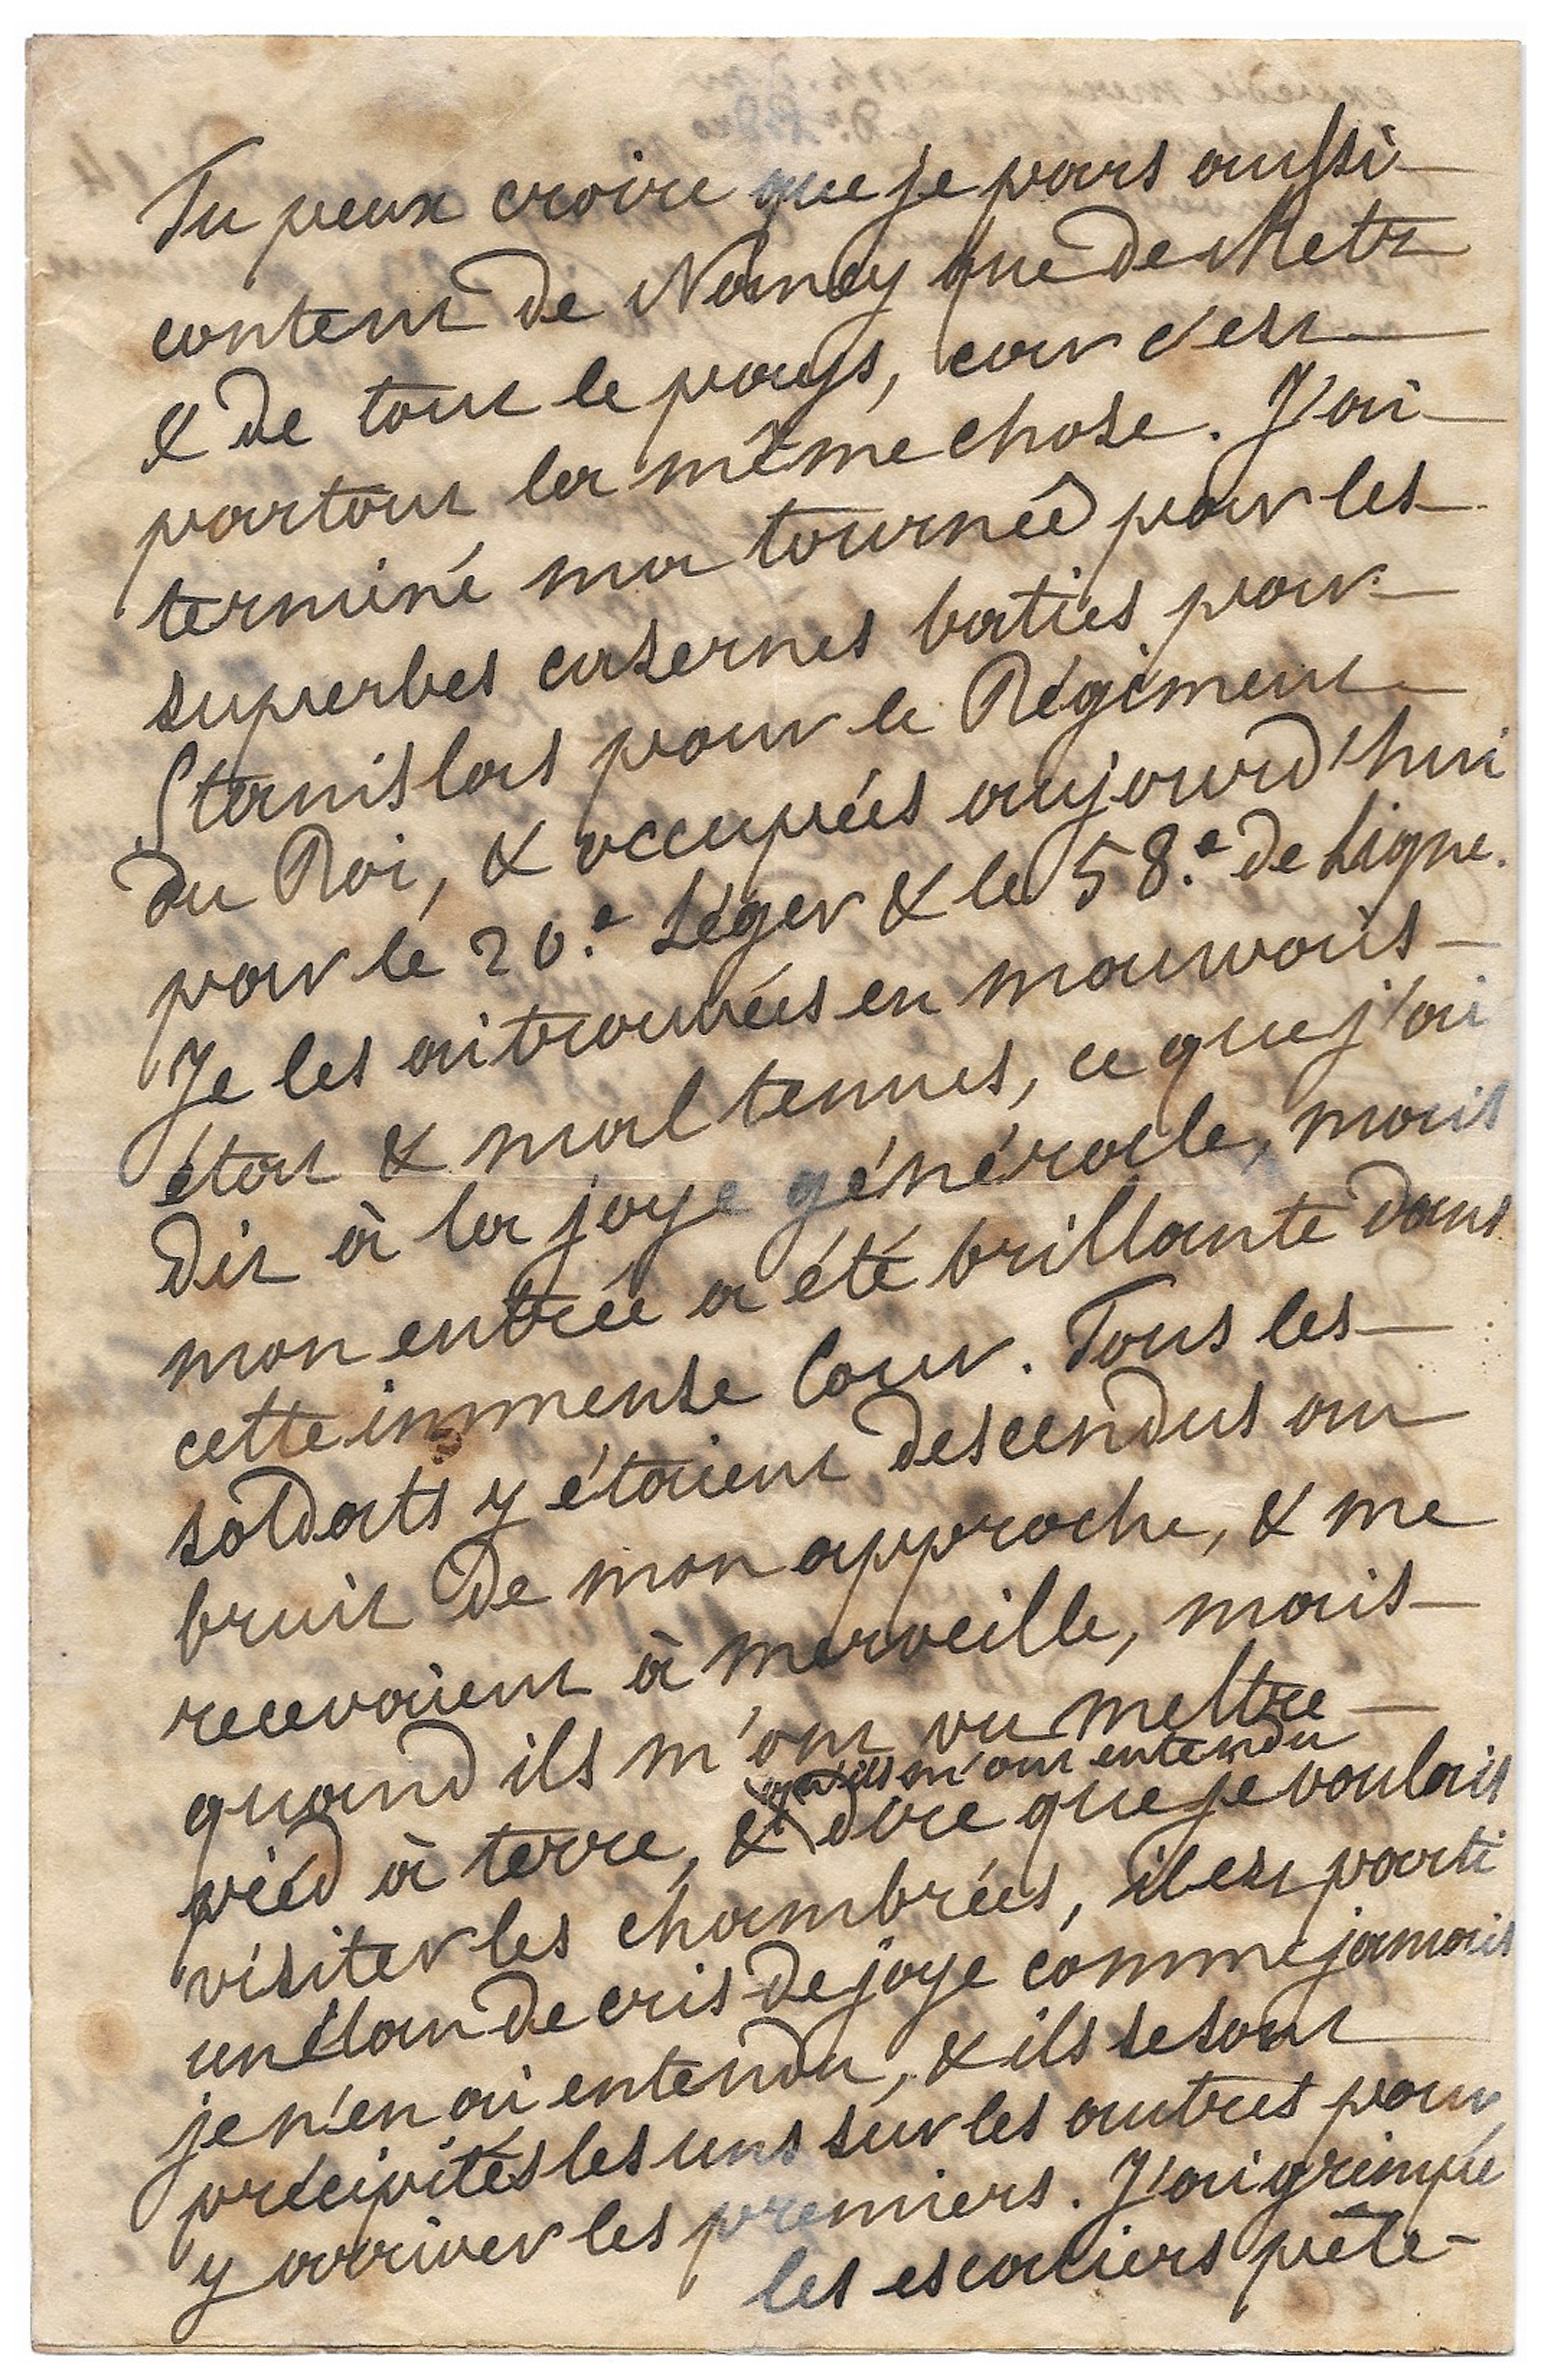 Tu peux croire que je pars aussi
content de Nancy que de Metz
& de tout le pays, car c'est
partout la même chose. J'ai
terminé ma tournée par les
superbes casernes baties par
Stanislas pour le Régiment
du Roi, & occupées aujourd'hui
par le 20.e Léger & le 58.e de Ligne.
Je les ai trouvées en mauvais
état & mal tenues, ce que j'ai
dit à la joye générale, mais
mon entrée a été brillante dans
cette immense Cour. Tous les
soldats y étaient descendus au
bruit de mon approche, & me
recevaient à merveille, mais
quand ils m'ont vu mettre
pied à terre, & qu'ils m'ont entendu dire que je voulais
visiter les chambrées, il est parti
un élan de cris de joye comme jamais
je n'en ai entendu, & ils se sont
précipités les uns sur les autres pour
y arriver les premiers. J'ai grimpé
les escaliers pêle-